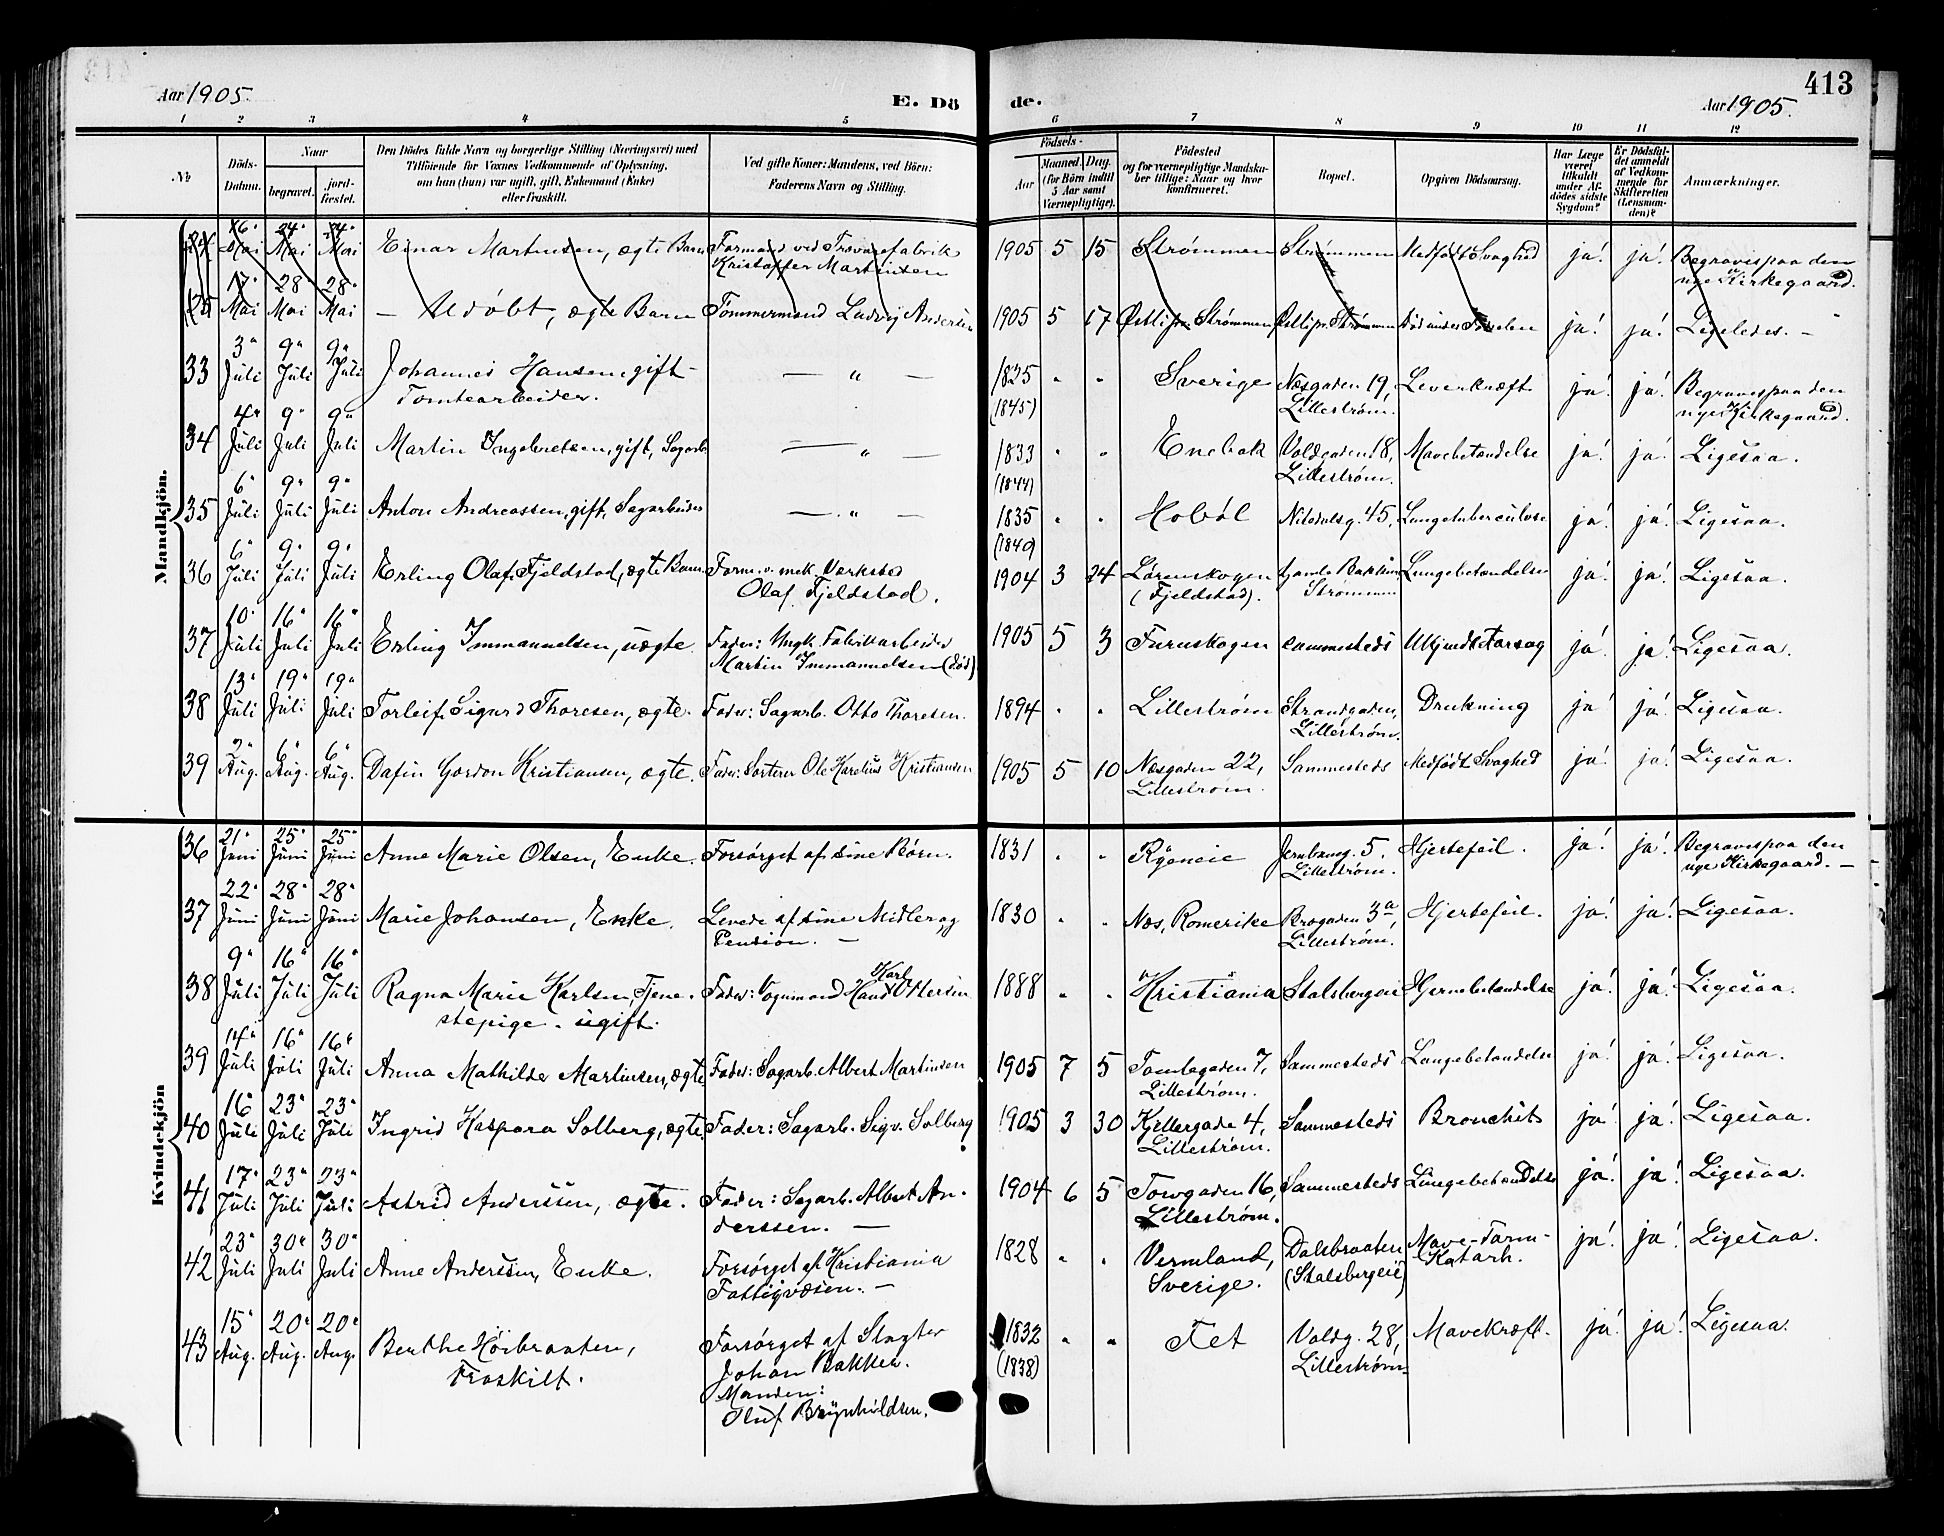 413
Aar 1905.
E. Dö
de.
Aar 1905.
1 2 3 4 5 6 7 8 9 10 11 12
No
Döds-Datum.
Naar
begravet.
jord-fæstet.
Den Dödes fulde Navn og borgerlige Stilling (Næringsvei) med
Tilföiende for Voxnes Vedkommende af Oplysning,
om han (hun) var ugift, gift, Enkemand (Enke)
eller fraskilt.
Ved gifte Koner: Mandens, ved Börn:
Faderens Navn og Stilling.
Födsels-
Aar
Maaned. Dag.
(for Börn indtil
5 Aar samt
Værnepligtige).
Födested
og for værnepligtige Mandska-
ber tillige: Naar og hvor
konfirmeret.
Bopæl.
Opgiven Dödsaarsag.
Har Læge
været
tilkaldt
under Af-
dödes sidste
Sygdom?
Er Dödsfal-
det anmeldt
af Vedkom-
mende for
Skifteretten
(Lensman-
den)?
Anmærkninger.
Mandkjön.
16' Mai 24' Mai 24' Mai Einar Martinsen, ægte Barn Formand ved Trævarefabrik 1905 5 15 Strømmen Strømmen Medfødt Svaghed ja! ja! Begravis paa den
Kristoffer Martinsen nye Kirkegaard.
25 17' Mai 28' Mai 28' Mai — Udøbt, ægte Barn Tømmermand Ludvig Andersen 1905 5 17 Østli pr. Strømmen Østli pr. Strømmen Død under Fødselen ja! ja! Ligeledes. —
33 3' Juli 9' Juli 9' Juli Johannes Hansen, gift — — " — 1835 " " Sverige Næsgaden 19, Leverkræft ja! ja! Begravis paa den
Tomtearbeider. (1845) Lillestrøm. nye Kirkegaard.
34 4' Juli 9' Juli 9' Juli Martin Ingebretsen, gift, Sagarb — " — 1833 " " Enebak Voldgaden 18, Mavebetændelse ja! ja! Ligesaa.
(1844) Lillestrøm.
35 6' Juli 9' Juli 9' Juli Anton Andreassen, gift, Sagarbeider — " — 1835 " " Hobøl Nitedalsg. 45, Lungetuberculose ja! ja! Ligesaa.
(1840)
36 6' Juli 9' Juli 9' Juli Erling Olaf Fjeldstad, ægte Barn Form. v. mek. Værksted 1904 3 24 Lørenskogen Gamle Lungebetændelse ja! ja! Ligesaa.
Olaf Fjeldstad. (Fjeldstad). Strømmen
37 10' Juli 16' Juli 16' Juli Erling Immanuelsen, uægte. Fader: Ungk. Fabrikarbeider 1905 5 3 Furuskogen sammesteds Ukjendt Aarsag ja! ja! Ligesaa.
Martin Immanuelsen (død)
38 13' Juli 19' Juli 19' Juli Torleif Sigurd Thoresen, ægte. Fader: Sagarb. Otto Thoresen. 1894 " " Lillestrøm Strandgaden, Drukning ja! ja! Ligesaa.
Lillestrøm.
39 2' Aug. 6' Aug. 6' Aug. Dafin Gordon Kristiansen, ægte. Fader: Sorterer Ole Karelius Kristiansen 1905 5 10 Næsgaden 22, Sammesteds Medfødt Svaghed ja! ja! Ligesaa.
Lillestrøm.
Kvindekjön
36 21' Juni 25' Juni 25' Juni Anne Marie Olsen, Enke. Forsørget af sine Børn. 1831 " " Rygeneie Jernbaneg. 5. Hjertefeil. ja! ja! Begravis paa den
Lillestrøm. nye Kirkegaard. —
37 22' Juni 28' Juni 28' Juni Marie Johansen, Enke. Levede af sine Midler og 1830 " " Næs, Romerike Brogaden 3a, Hjertefeil. ja! ja! Ligesaa.
Pension. — Lillestrøm.
38 9' Juli 16' Juli 16' Juli Ragna Marie Karlsen, Tjene- Fader: Vognmand Hans Karl Ottersen 1888 " " Kristiania Stalsbergeie Hjernebetændelse ja! ja! Ligesaa.
stepige - ugift.
39 14' Juli 16' Juli 16' Juli Anna Mathilde Martinsen, ægte Fader: Sagarb. Albert Martinsen 1905 7 5 Tomtegaden 7, Sammesteds Lungebetændelse ja! ja! Ligesaa.
Lillestrøm.
40 16' Juli 23' Juli 23' Juli Ingrid Kaspara Solberg, ægte. Fader: Sagarb. Sigv. Solberg 1905 3 30 Kjellergade 4, Sammesteds Bronchit ja! ja! Ligesaa.
Lillestrøm.
41 17' Juli 23' Juli 23' Juli Astrid Anderssen, ægte. Fader: Sagarb. Albert An- 1904 6 5 Torvgaden 16, Sammesteds Lungebetændelse ja! ja! Ligesaa.
derssen. — Lillestrøm.
42 23' Juli 30' Juli 30' Juli Anne Anderssen, Enke. Forsørget af Kristiania 1828 " " Vermland, Dalsbraaten Mave-Tarm- ja! ja! Ligesaa.
Fattigvæsen. — Sverige. (Stalsbergeie) Katarh.
43 15' Aug. 20' Aug. 20' Aug. Berthe Hörbraaten, Forsørget af Slagter 1832 " " Fet Voldg. 28, Mavekræft. ja! ja! Ligesaa.
Fraskilt. Johan Bakken. (1838) Lillestrøm
Manden:
Oluf Brynhildsen.